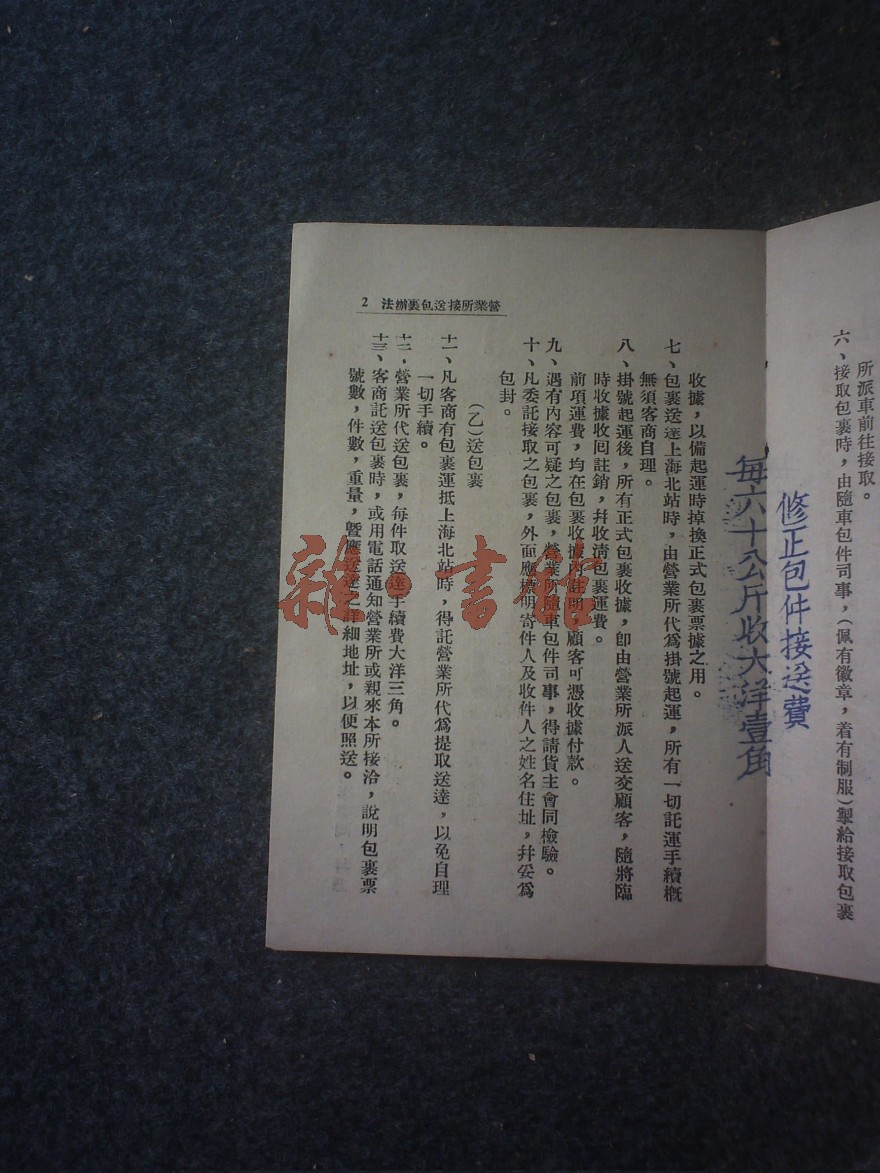 所派車前往接取。
六、接取包裹時，由隨車包件司事，（佩有徽章，着有制服）掣給接取包裹
修正包件接送費
每六十公斤收大洋壹角
營業所接送包裹辦法 2
收據，以備起運時掉換正式包裹票據之用。
七、包裹送達上海北站時，由營業所代爲掛號起運，所有一切託運手續槪
無須客商自理。
八、掛號起運後，所有正式包裹收據，卽由營業所派人送交顧客，隨將臨
時收據收回註銷，幷收淸包裹運費。
前項運費，均在包裹收據內註明，顧客可憑收據付款。
九、遇有內容可疑之包裹，營業所隨車包件司事，得請貨主會同檢驗。
十、凡委託接取之包裹，外面應標明寄件人及收件人之姓名住址，幷妥爲
包封。
（乙）送包裹
十一、凡客商有包裹運抵上海北站時，得託營業所代爲提取送達，以免自理
一切手續。
十二、營業所代送包裹，每件取送達手續費大洋三角。
十三、客商託送包裹時，或用電話通知營業所或親來本所接洽，說明包裹票
號數，件數，重量，曁應送達之詳細地址，以便照送。
雜·書館